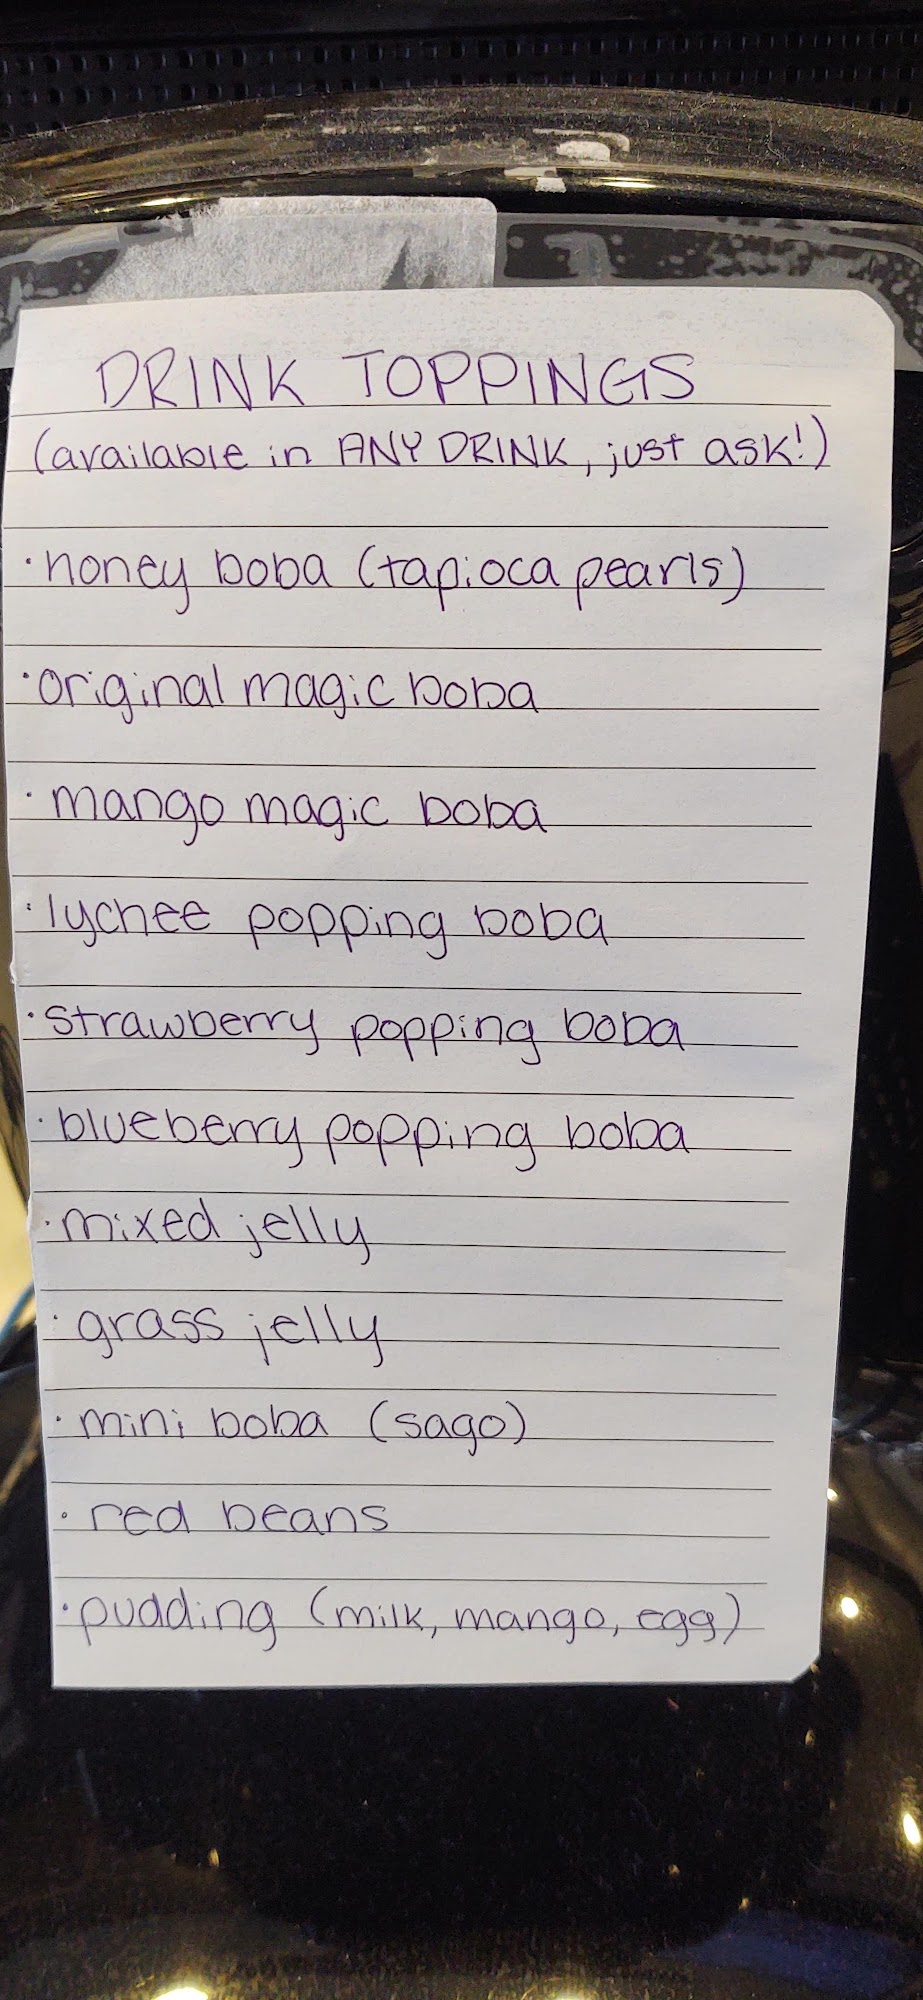 DRINK TOPPINGS
(available in ANY DRINK, just ask!)
·honey boba (tapioca pearls)
·original magic boba
·mango magic boba
·lychee popping boba
·strawberry popping boba
·blueberry popping boba
·mixed jelly
·grass jelly
·mini boba (sago)
·red beans
·pudding (milk, mango, egg)